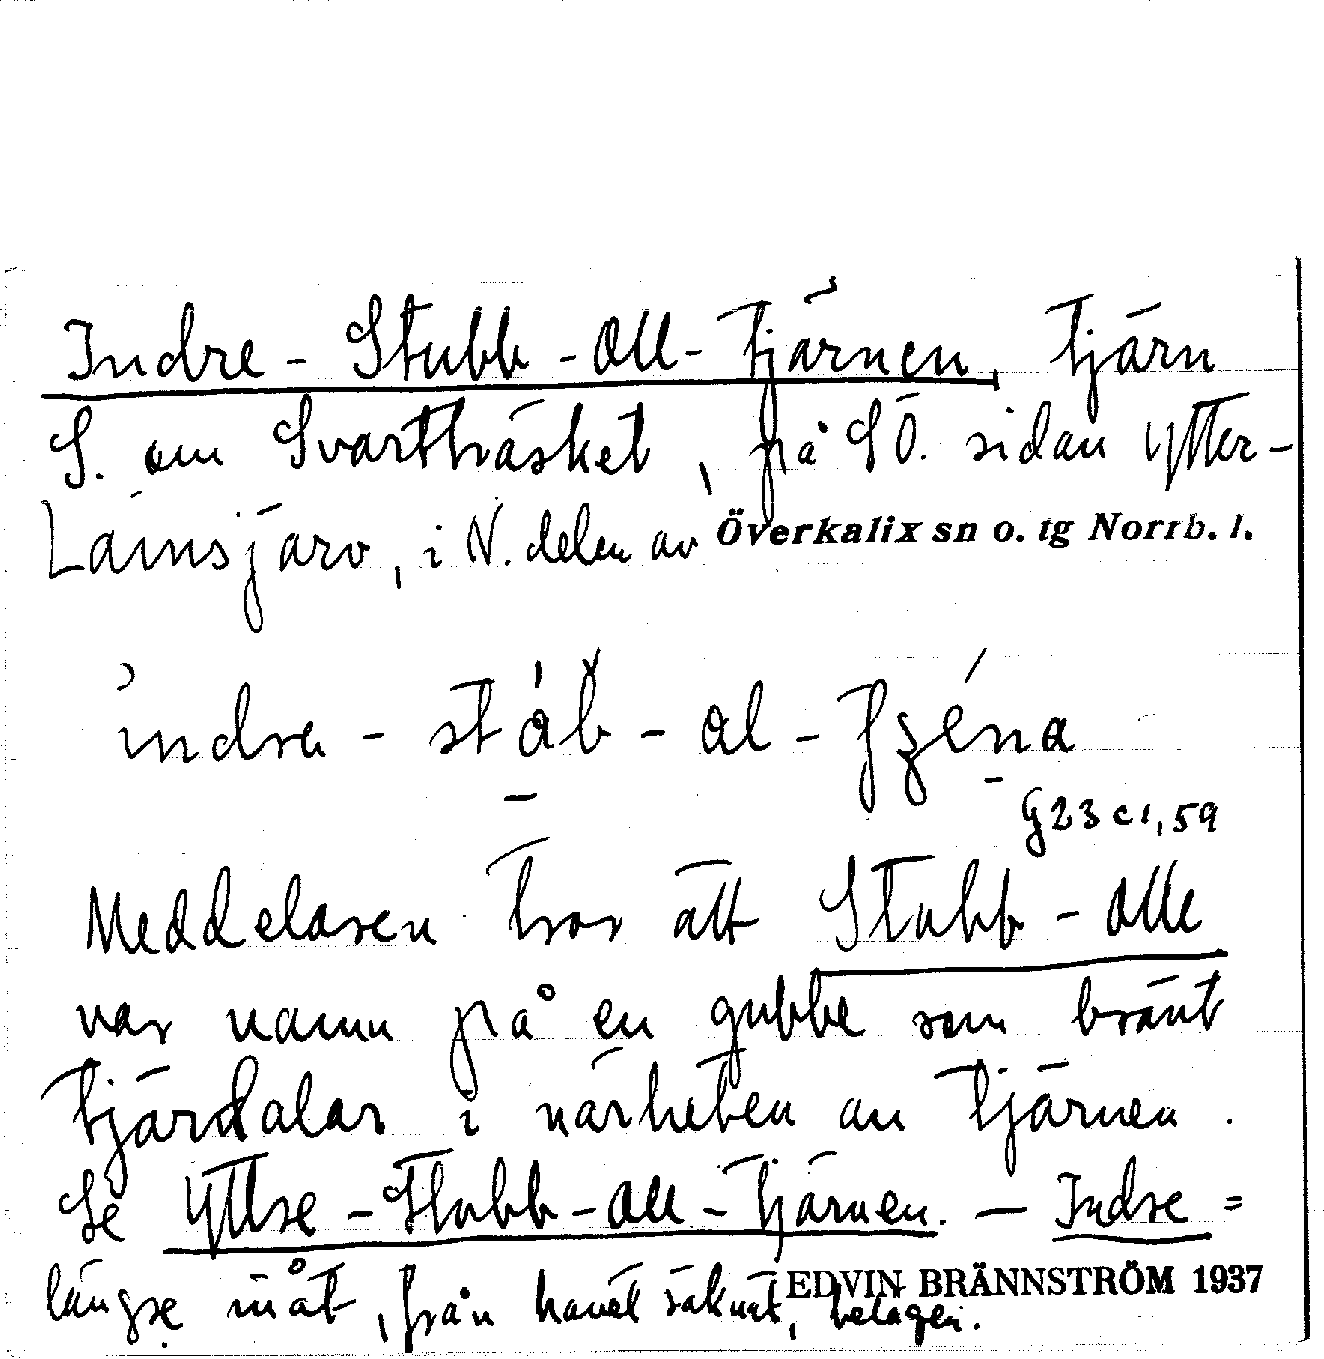 Indre-Stubb-Oll-tjärnen, tjärn
S. om Svartträsket, på SÖ. sidan Ytter-
Lainsjärv, i N. delen av Överkalix sn o. tg Norrb. l.
G23c1,59
Meddelaren tror att Stubb-Olle
var namn på en gubbe som bränt
tjärdalar i närheten av tjärnen.
Se Yttre-Stubb-Oll-tjärnen. — Indre =
längre inåt, från havet räknat, belägen.
EDVIN BRÄNNSTRÖM 1937